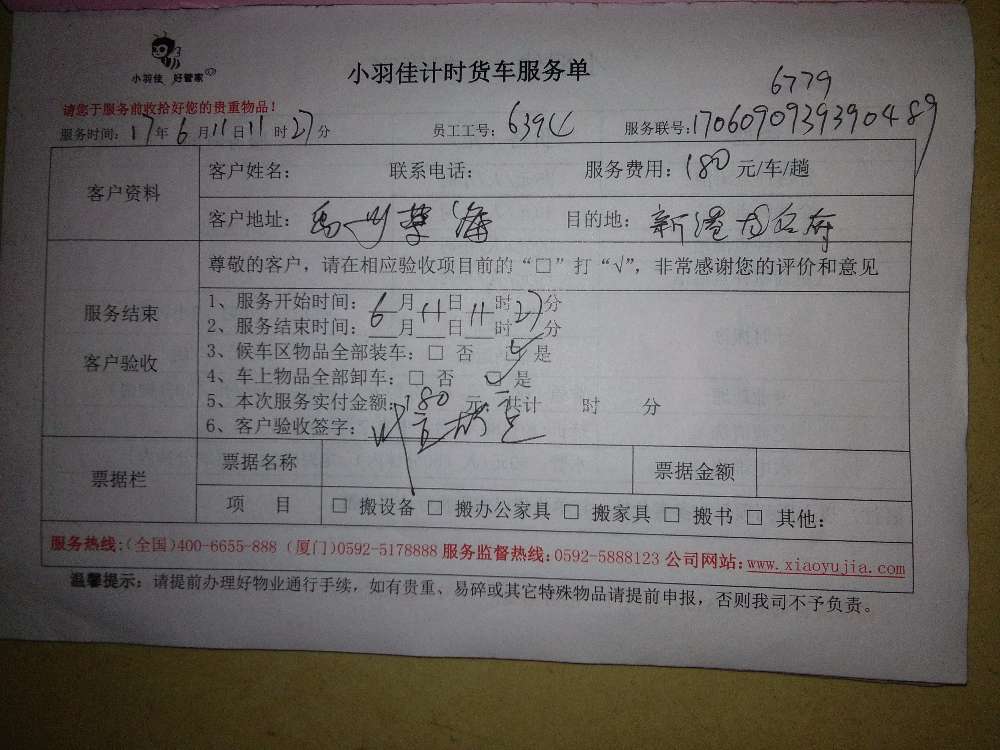 小羽佳 好管家
小羽佳计时货车服务单
6779
请您于服务前收拾好您的贵重物品！
服务时间：17年6月11日11时27分 员工工号：6394 服务联号：1706090939390489
客户资料
客户姓名： 联系电话： 服务费用：180元/车/趟
客户地址： 目的地：新港
尊敬的客户，请在相应验收项目前的“□”打“√”，非常感谢您的评价和意见
服务结束
客户验收
1、服务开始时间：6月11日11时27分
2、服务结束时间：___月___日___时___分
3、候车区物品全部装车：□ 否 □ 是
4、车上物品全部卸车：□ 否 □ 是
5、本次服务实付金额：180元，共计 时 分
6、客户验收签字：
票据栏
票据名称 票据金额
项 目 □ 搬设备 □ 搬办公家具 □ 搬家具 □ 搬书 □ 其他：
服务热线:(全国)400-6655-888 (厦门)0592-5178888 服务监督热线:0592-5888123 公司网站:www.xiaoyujia.com
温馨提示：请提前办理好物业通行手续，如有贵重、易碎或其它特殊物品请提前申报，否则我司不予负责。